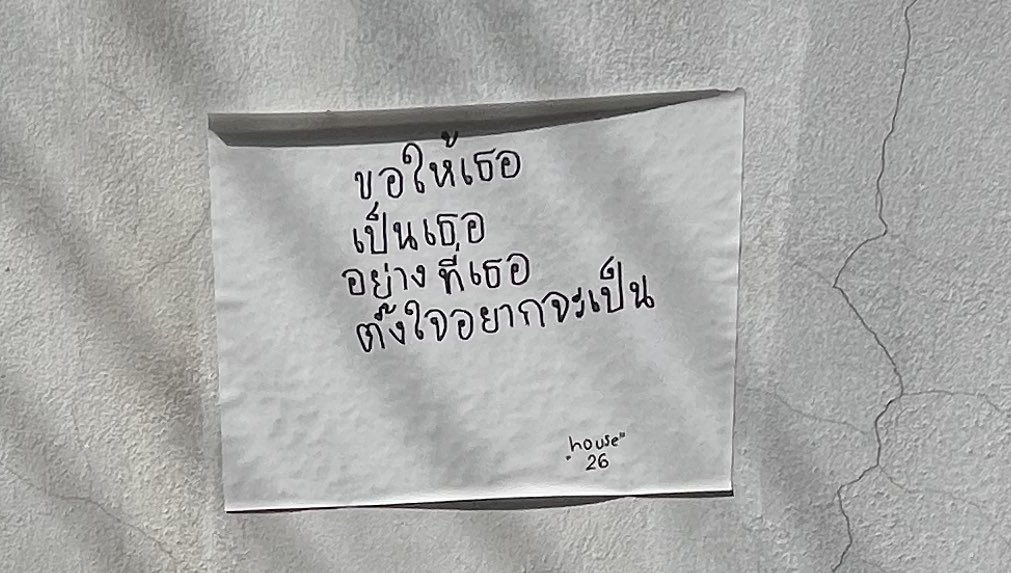 ขอให้เธอ
เป็นเธอ
อย่างที่เธอ
ตั้งใจอยากจะเป็น
"house"
26